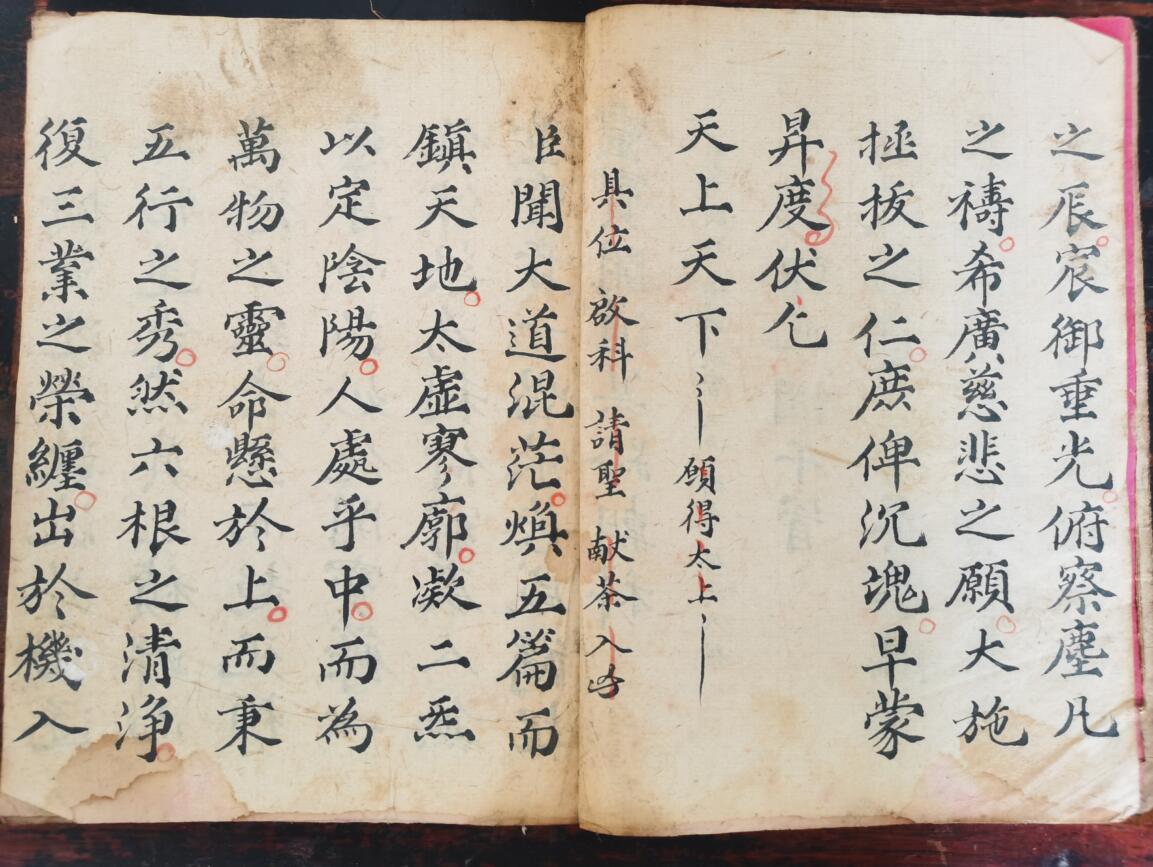 之辰宸御垂光俯察塵凡
之禱希廣慈悲之願大施
拯拔之仁庶俾沉塊早蒙
昇度伏乞
天上天下 願得太上
具位 啟科 請聖 献茶 入吟
臣聞大道混茫煥五篇而
鎮天地太虛寥廓凝二炁
以定陰陽人處乎中而為
萬物之靈命懸於上而秉
五行之秀然六根之清淨
復三業之榮纏出於機入